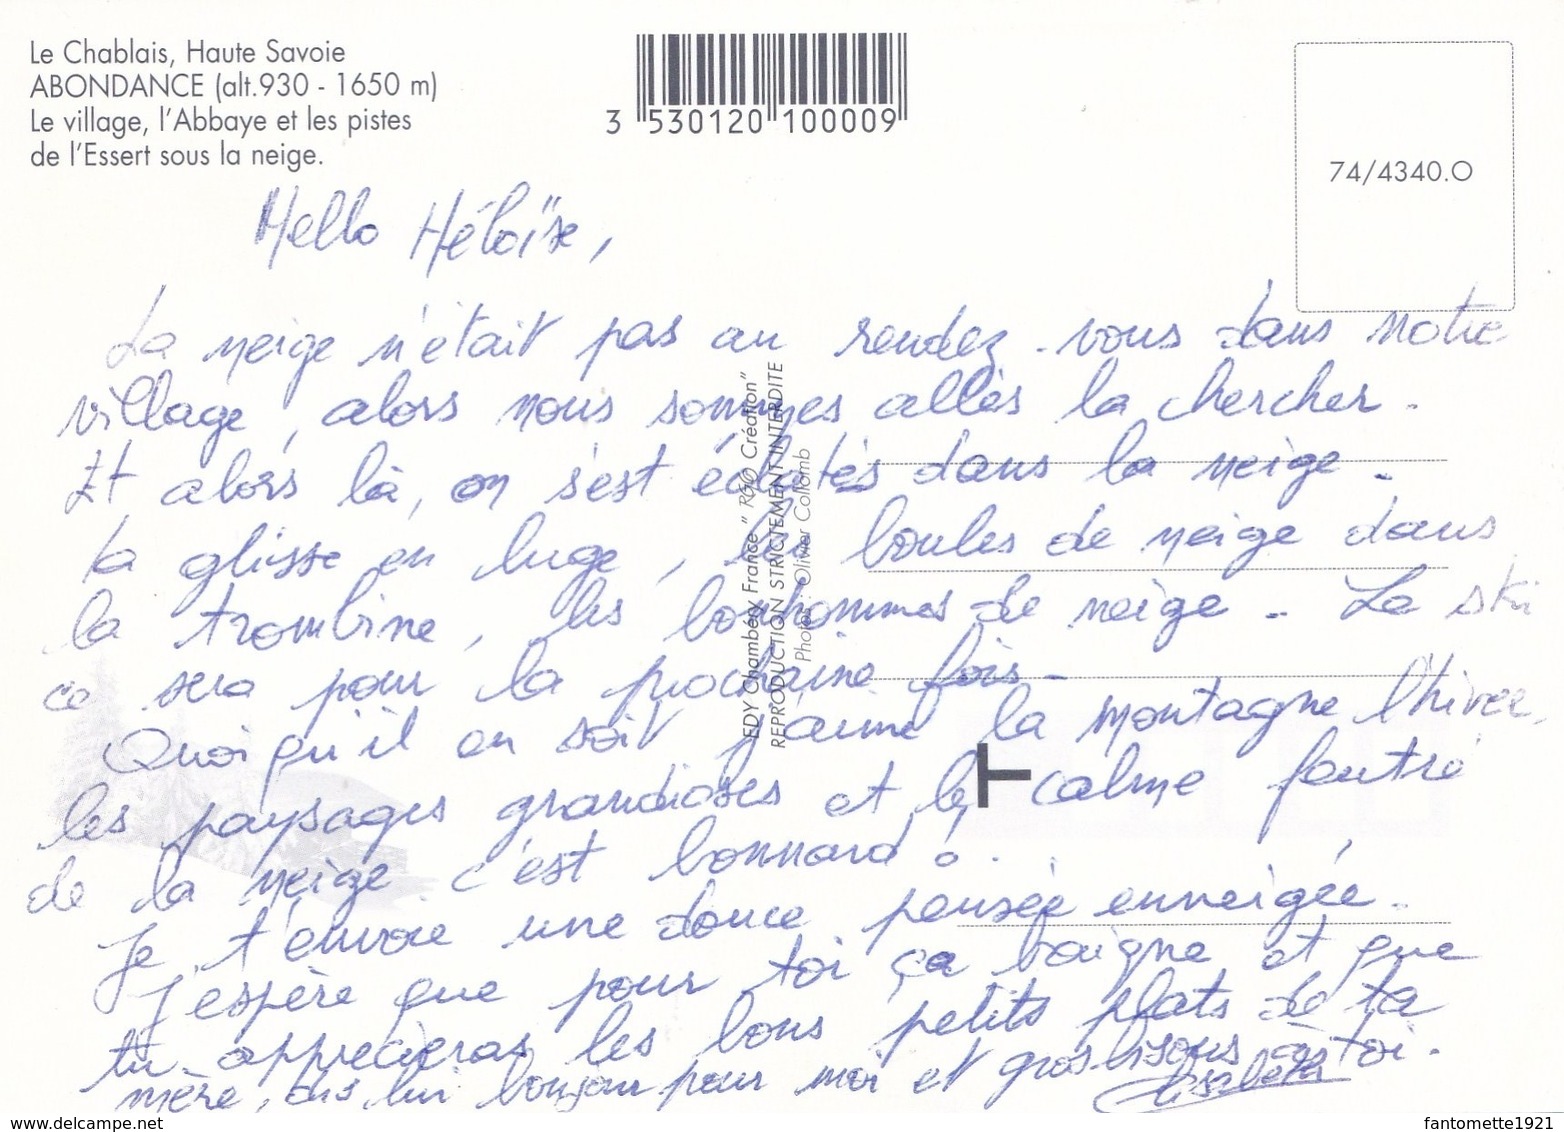 Le Chablais, Haute Savoie
ABONDANCE (alt.930 - 1650 m)
Le village, l'Abbaye et les pistes
de l'Essert sous la neige.
3 530120 100009
74/4340.O
Hello Héloïse,
La neige n'était pas au rendez-vous dans notre
village, alors nous sommes allés la chercher.
Et alors là, on s'est éclatés dans la neige.
La glisse en luge, les boules de neige dans
la trombine, les bonhommes de neige. Le ski
ce sera pour la prochaine fois.
Quoi qu'il en soit j'aime la montagne l'hiver,
les paysages grandioses et le calme feutré
de la neige c'est bonnard !
Je t'envoie une douce pensée enneigée.
J'espère que pour toi ça baigne et que
tu apprécieras les bons petits plats de ta
mère, dis lui bonjour pour moi et gros bisous à toi.
Elisabeth
EDY Chambéry France " R&O Création"
REPRODUCTION STRICTEMENT INTERDITE
Photos : Olivier Collomb
delcampe.net
fantomette1921